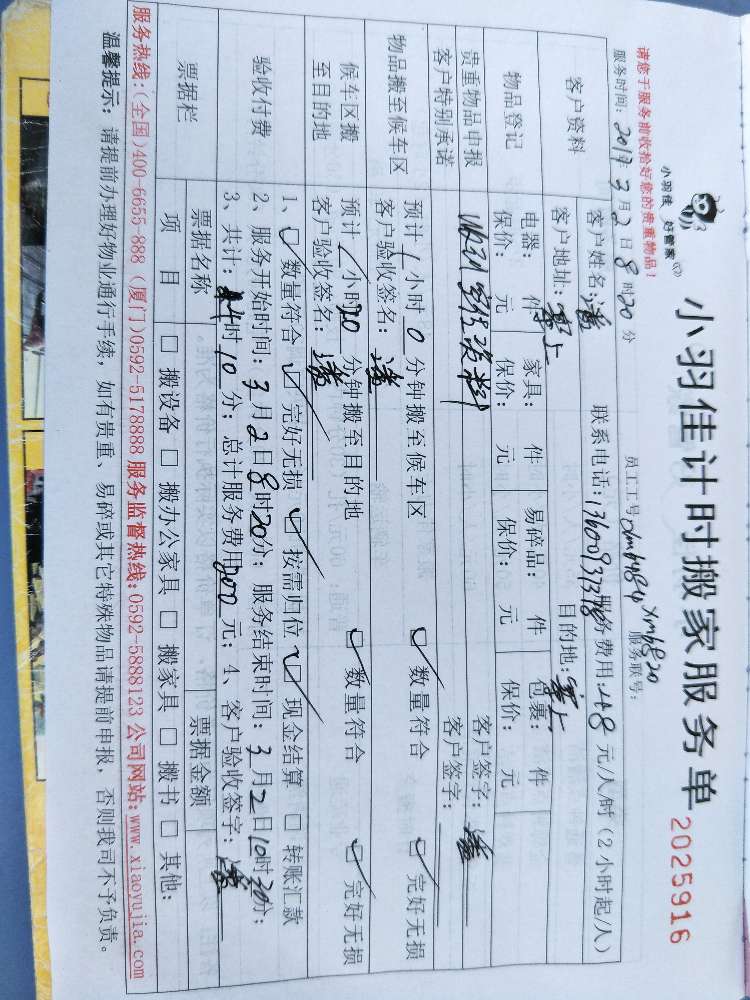 小羽佳 好管家
小羽佳计时搬家服务单
2025916
请您于服务前收拾好您的贵重物品！
员工工号 xm6984 xm6820
服务联号：
服务时间：2019 3月2日8时20分
客户资料
客户姓名：潘
联系电话：
服务费用：48元/人/时（2小时起/人）
客户地址：
目的地：
物品登记
电器： 件 家具： 件 易碎品： 件 包裹： 件
保价： 元 保价： 元 保价： 元 保价： 元
贵重物品申报
客户签字：潘
客户特别承诺
客户签字：
物品搬至候车区
预计1小时0分钟搬至候车区
☑数量符合 ☑完好无损
客户验收签名：潘
候车区搬至目的地
预计1小时20分钟搬至目的地
☑数量符合 ☑完好无损
客户验收签名：潘
验收付费
1、☑数量符合 ☑完好无损 ☑按需归位 ☑现金结算 □转账汇款
2、服务开始时间：3月2日8时20分；服务结束时间：3月2日10时30分；
3、共计：4时10分；总计服务费用200元；4、客户验收签字：潘
票据栏
票据名称
票据金额
项 目
□搬设备 □搬办公家具 □搬家具 □搬书 □其他：
服务热线：(全国)400-6655-888（厦门)0592-5178888 服务监督热线:0592-5888123 公司网站:www.xiaoyujia.com
温馨提示：请提前办理好物业通行手续，如有贵重、易碎或其它特殊物品请提前申报，否则我司不予负责。